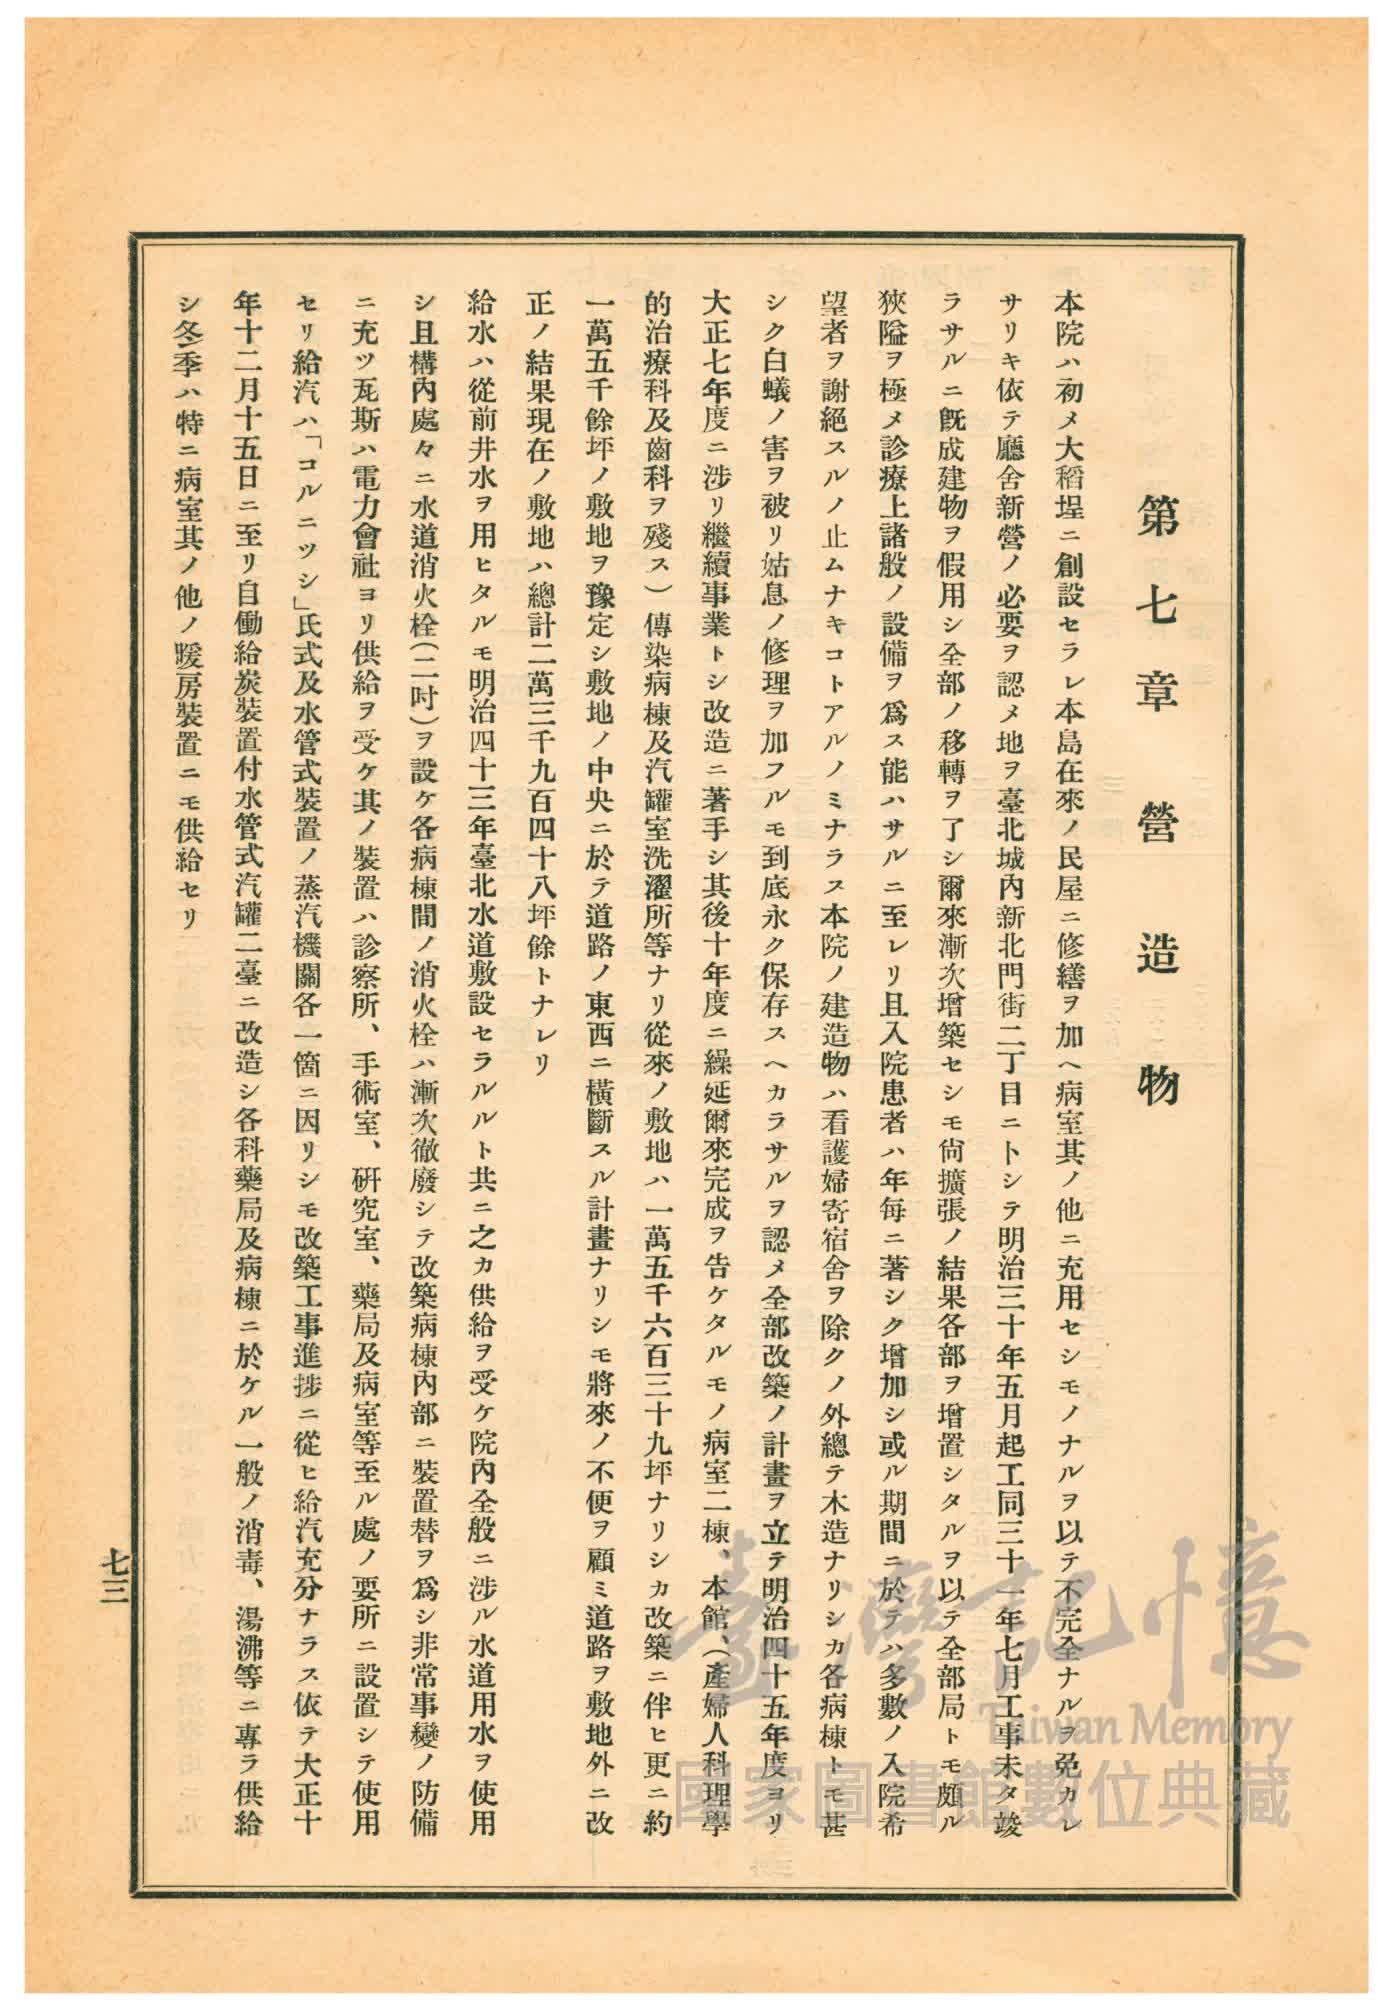 第七章 營造物
本院ハ初メ大稻埕ニ創設セラレ本島在來ノ民屋ニ修繕ヲ加ヘ病室其ノ他ニ充用セシモノナルヲ以テ不完全ナルヲ免カレ
サリキ依テ廳舍新營ノ必要ヲ認メ地ヲ臺北城內新北門街二丁目ニトシテ明治三十年五月起工同三十一年七月工事未タ竣
ラサルニ旣成建物ヲ假用シ全部ノ移轉ヲ了シ爾來漸次增築セシモ尙擴張ノ結果各部ヲ增置シタルヲ以テ全部局トモ頗ル
狹隘ヲ極メ診療上諸般ノ設備ヲ爲ス能ハサルニ至レリ且入院患者ハ年每ニ著シク增加シ或ル期間ニ於テハ多數ノ入院希
望者ヲ謝絕スルノ止ムナキコトアルノミナラス本院ノ建造物ハ看護婦寄宿舍ヲ除クノ外總テ木造ナリシカ各病棟トモ甚
シク白蟻ノ害ヲ被リ姑息ノ修理ヲ加フルモ到底永ク保存スヘカラサルヲ認メ全部改築ノ計畫ヲ立テ明治四十五年度ヨリ
大正七年度ニ涉リ繼續事業トシ改造ニ著手シ其後十年度ニ繰延爾來完成ヲ告ケタルモノ病室二棟、本館、(產婦人科理學
的治療科及齒科ヲ殘ス)傳染病棟及汽罐室洗濯所等ナリ從來ノ敷地ハ一萬五千六百三十九坪ナリシカ改築ニ伴ヒ更ニ約
一萬五千餘坪ノ敷地ヲ豫定シ敷地ノ中央ニ於テ道路ノ東西ニ橫斷スル計畫ナリシモ將來ノ不便ヲ顧ミ道路ヲ敷地外ニ改
正ノ結果現在ノ敷地ハ總計二萬三千九百四十八坪餘トナレリ
給水ハ從前井水ヲ用ヒタルモ明治四十三年臺北水道敷設セラルルト共ニ之カ供給ヲ受ケ院內全般ニ涉ル水道用水ヲ使用
シ且構內處々ニ水道消火栓(二吋)ヲ設ケ各病棟間ノ消火栓ハ漸次徹廢シテ改築病棟內部ニ裝置替ヲ爲シ非常事變ノ防備
ニ充ツ瓦斯ハ電力會社ヨリ供給ヲ受ケ其ノ裝置ハ診察所、手術室、硏究室、藥局及病室等至ル處ノ要所ニ設置シテ使用
セリ給汽ハ「コルニツシ」氏式及水管式裝置ノ蒸汽機關各一箇ニ因リシモ改築工事進捗ニ從ヒ給汽充分ナラス依テ大正十
年十二月十五日ニ至リ自働給炭裝置付水管式汽罐二臺ニ改造シ各科藥局及病棟ニ於ケル一般ノ消毒、湯沸等ニ專ラ供給
シ冬季ハ特ニ病室其ノ他ノ暖房裝置ニモ供給セリ
七三
臺灣記憶
Taiwan Memory
國家圖書館數位典藏